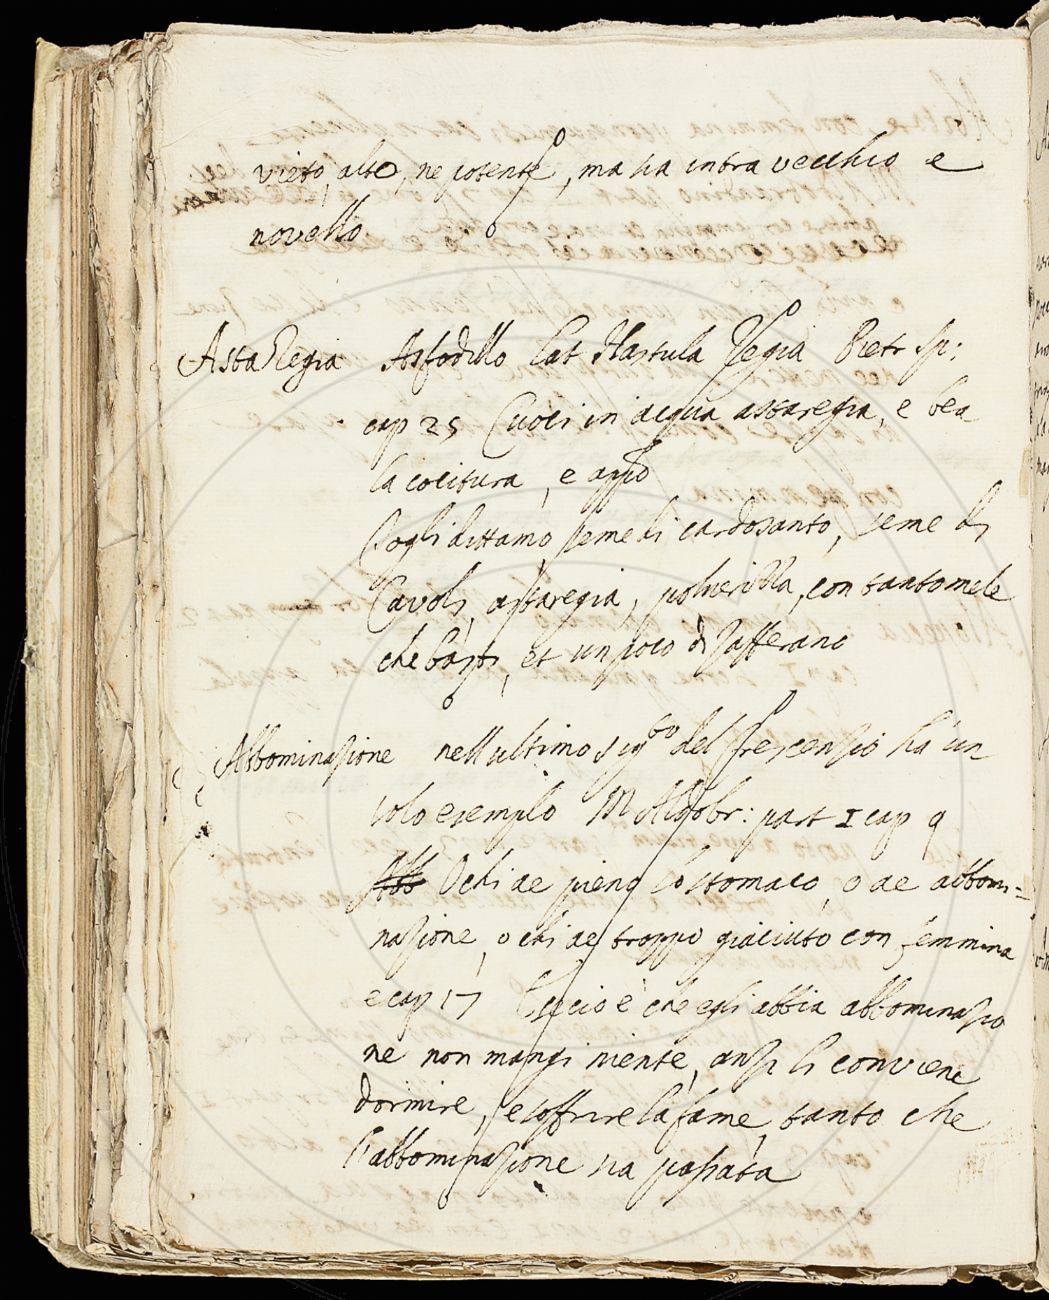 vieto, alto, ne potente, ma sia intra vecchio e
novello.
Asta Regia Asfodillo Lat Hastula Regia Pietr sp:
cap 25 Cuoci in acqua astaregia, e bea
la cocitura, e appo
Togli dittamo, seme di cardosanto, seme di
Cavoli, astaregia, polverizza, con tanto mele
che basti, et un poco di zafferano
Abbominazione nell ultimo sigto del Crescenzio ha un
solo esempio M Aldobr: part 1 cap 9
Abb O chi ae pieno lo stomaco, o ae abbomi=
nazione, o chi ae troppo giaciuto con femmina
e cap 17 E ciò è che egli abbia abbominazio
ne non mangi niente, anzi li conviene
dormire, e soffrire la fame, tanto che
l'abbominazione sia passata